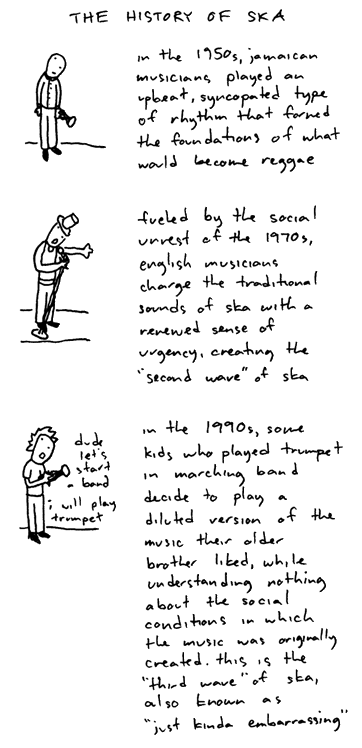 THE HISTORY OF SKA
in the 1950s, jamaican
musicians played an
upbeat, syncopated type
of rhythm that formed
the foundations of what
would become reggae
fueled by the social
unrest of the 1970s,
english musicians
charge the traditional
sounds of ska with a
renewed sense of
urgency, creating the
"second wave" of ska
dude
let's
start
a band
i will play
trumpet
in the 1990s, some
kids who played trumpet
in marching band
decide to play a
diluted version of the
music their older
brother liked, while
understanding nothing
about the social
conditions in which
the music was originally
created. this is the
"third wave" of ska,
also known as
"just kinda embarrassing"